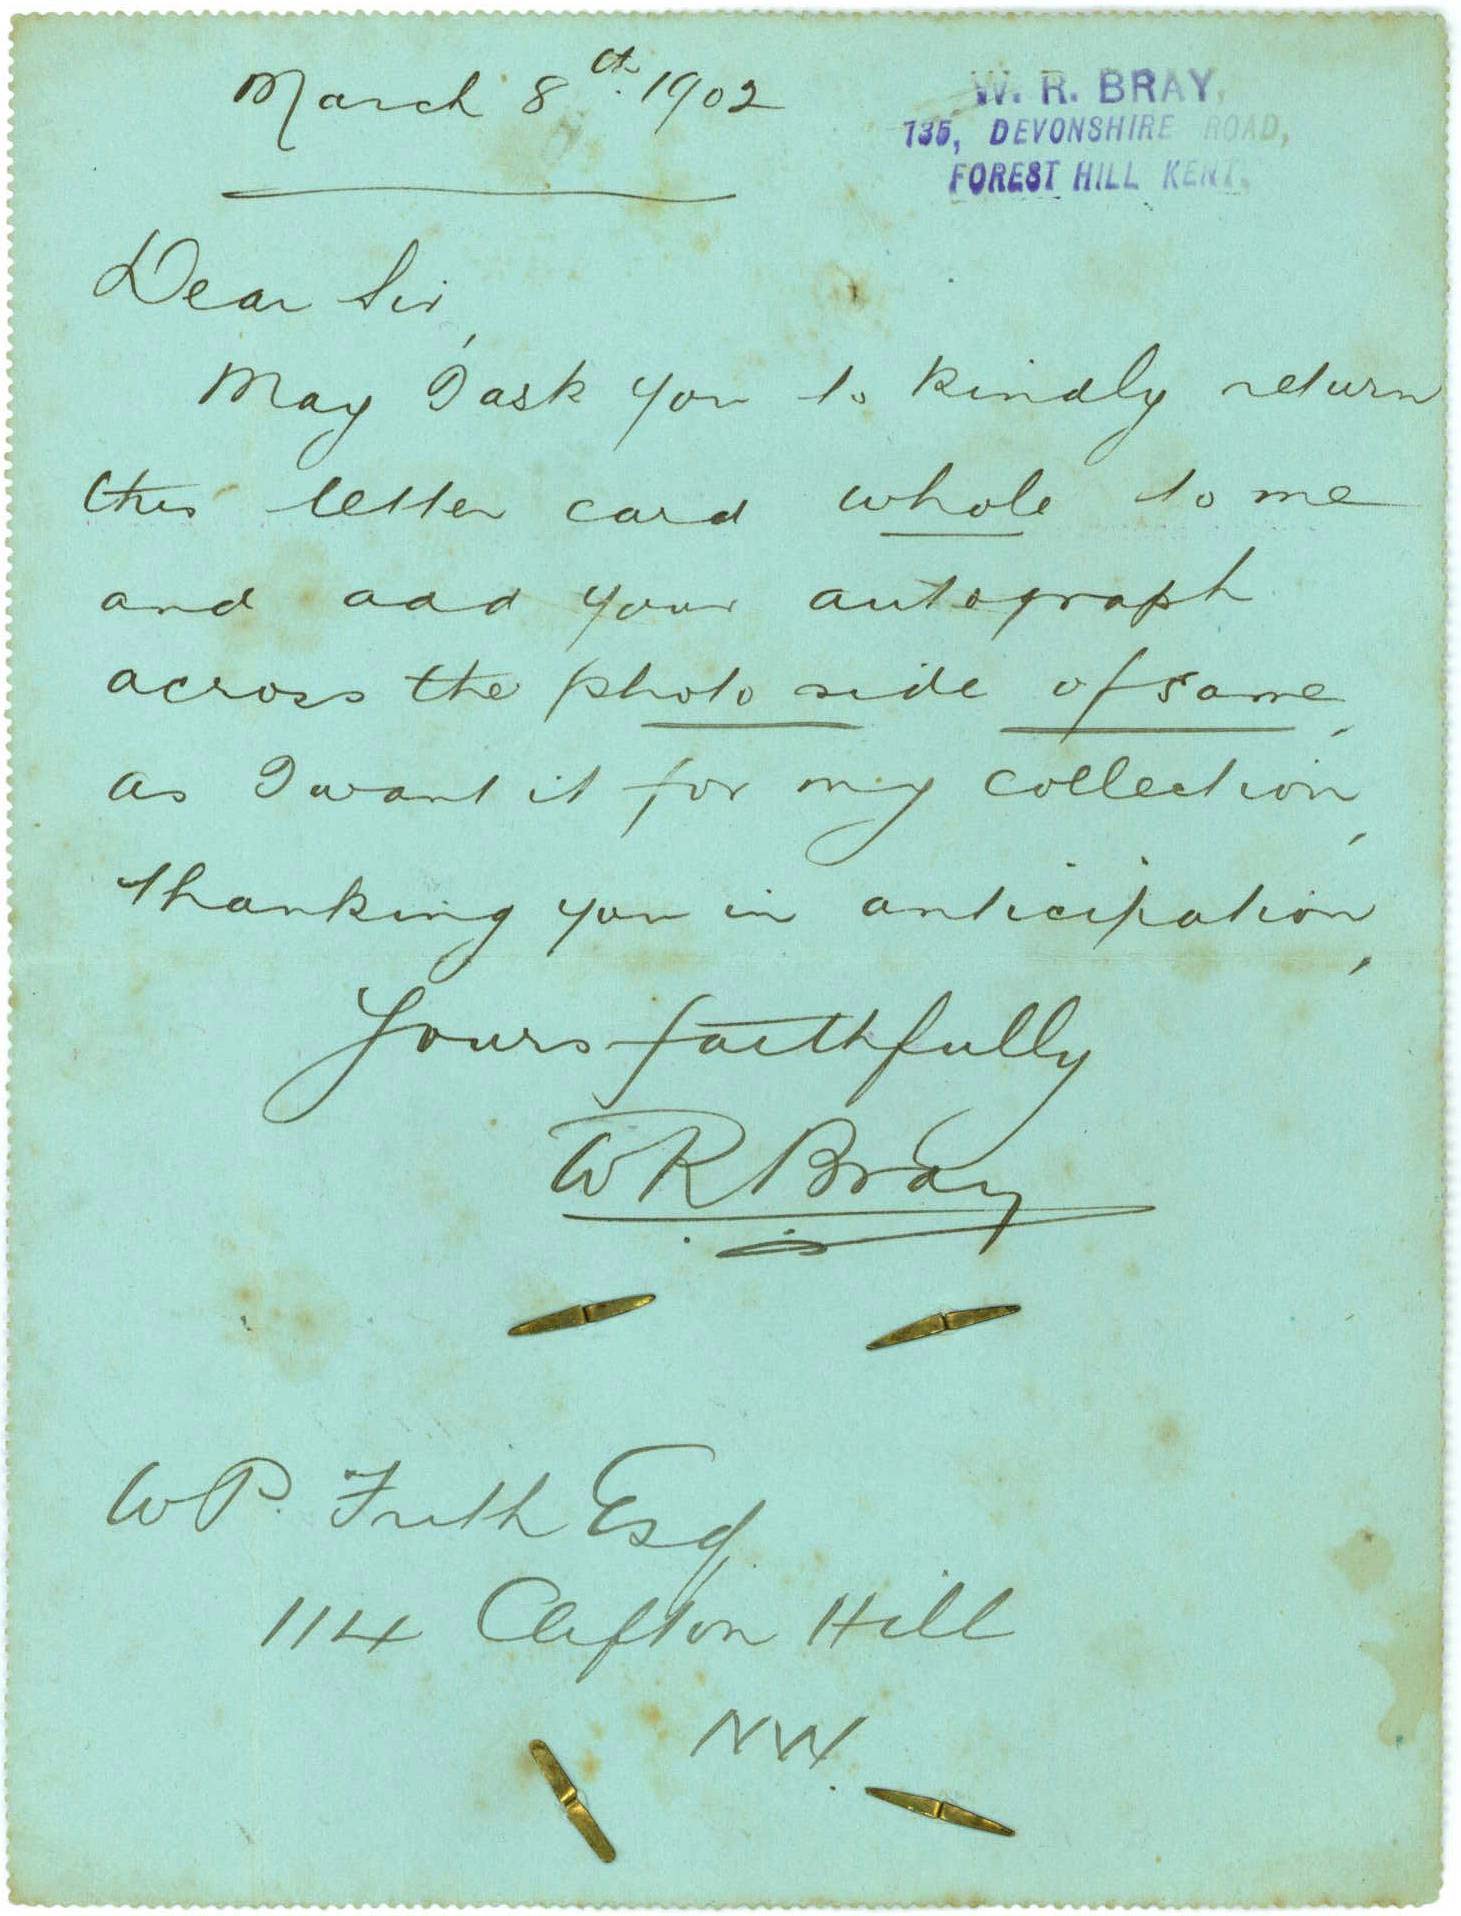 March 8th. 1902
W. R. BRAY,
135, DEVONSHIRE ROAD,
FOREST HILL KENT.
Dear Sir,
May I ask you to kindly return
this letter card whole to me
and add your autograph
across the photo side of same,
as I want it for my collection,
thanking you in anticipation,
Yours faithfully
W R Bray
W P. Frith Esq
114 Clifton Hill
NW.